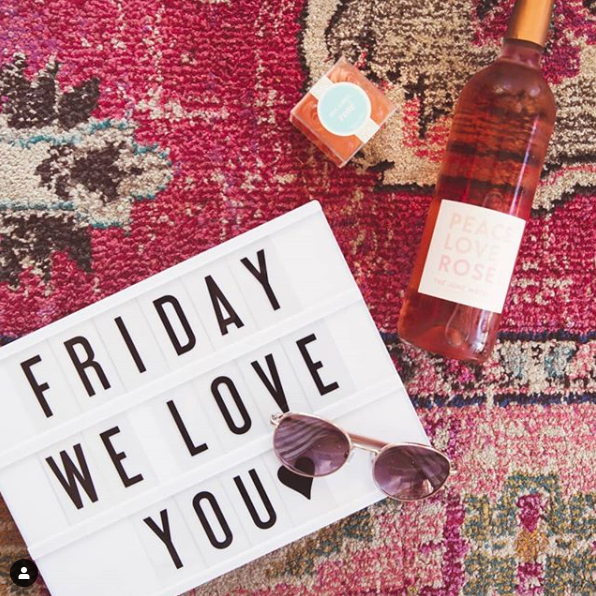 FRIDAY
WE LOVE
YOU
PEACE
LOVE
ROSÉ